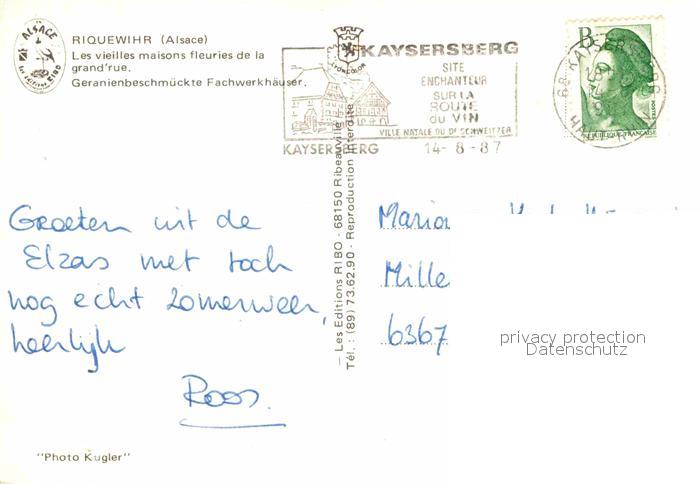 ALSACE
RIQUEWIHR (Alsace)
Les vieilles maisons fleuries de la
grand'rue.
Geranienbeschmückte Fachwerkhäuser.
KAYSERSBERG
SITE
ENCHANTEUR
SUR LA
ROUTE
du VIN
VILLE NATALE DU Dr SCHWEITZER
KAYSERSBERG 14-8-87
B
68 KAYSERSBERG
REPUBLIQUE FRANÇAISE
Les Editions RIBO - 68150 Ribeauvillé
Tél.: (89) 73.62.90 - Reproduction interdite
Groeten uit de
Elzas met toch
nog echt zomerweer,
heerlijk
Roos.
Maria
Mille
6367
privacy protection
Datenschutz
"Photo Kugler"